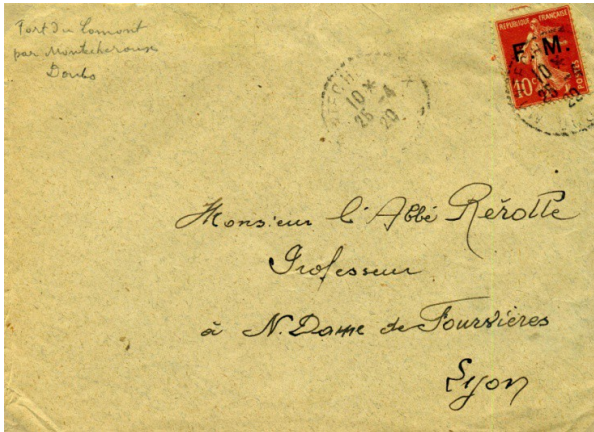 Fort du Lomont
par Montécheroux
Doubs
REPUBLIQUE FRANÇAISE
F. M.
10c
POSTES
10 *
26 -4
20
10 *
26 -4
20
Monsieur l'Abbé Rérolle
Professeur
à N. Dame de Fourvières
Lyon